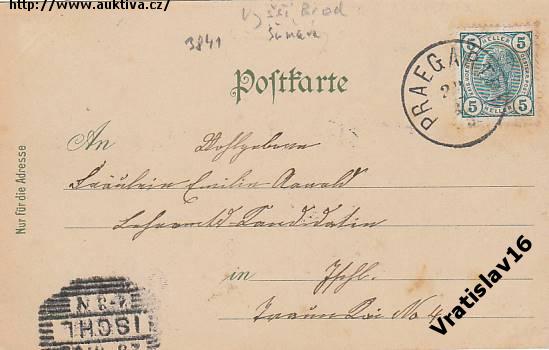 http://www.auktiva.cz/
Vyšší Brod
Šumava
3841
Postkarte
PRAEGA
5 HELLER 5
5 HELLER 5
An Wohlgeborene
Fräulein Emilie Aswald
Lehramts Kandidatin
in Ischl.
Traun Kai No 4
Nur für die Adresse
ISCHL
Vratislav16